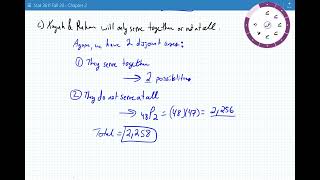 Stat 3611 Fall 20 - Chapter 2
c) Kayah & Rohan will only serve together or not at all.
Again, we have 2 disjoint cases:
① They serve together
→ 2 possibilities
② They do not serve at all
→ 48P2 = (48)(47) = 2,256
Total = 2,258